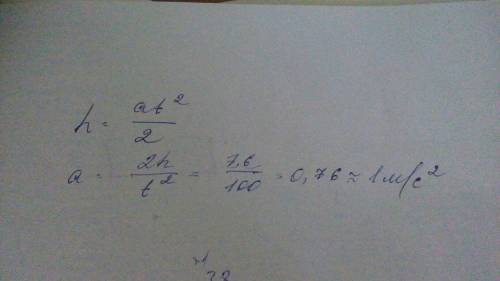 h = at²/2
a = 2h/t² = 7,6/100 = 0,76 ≈ 1 м/с²